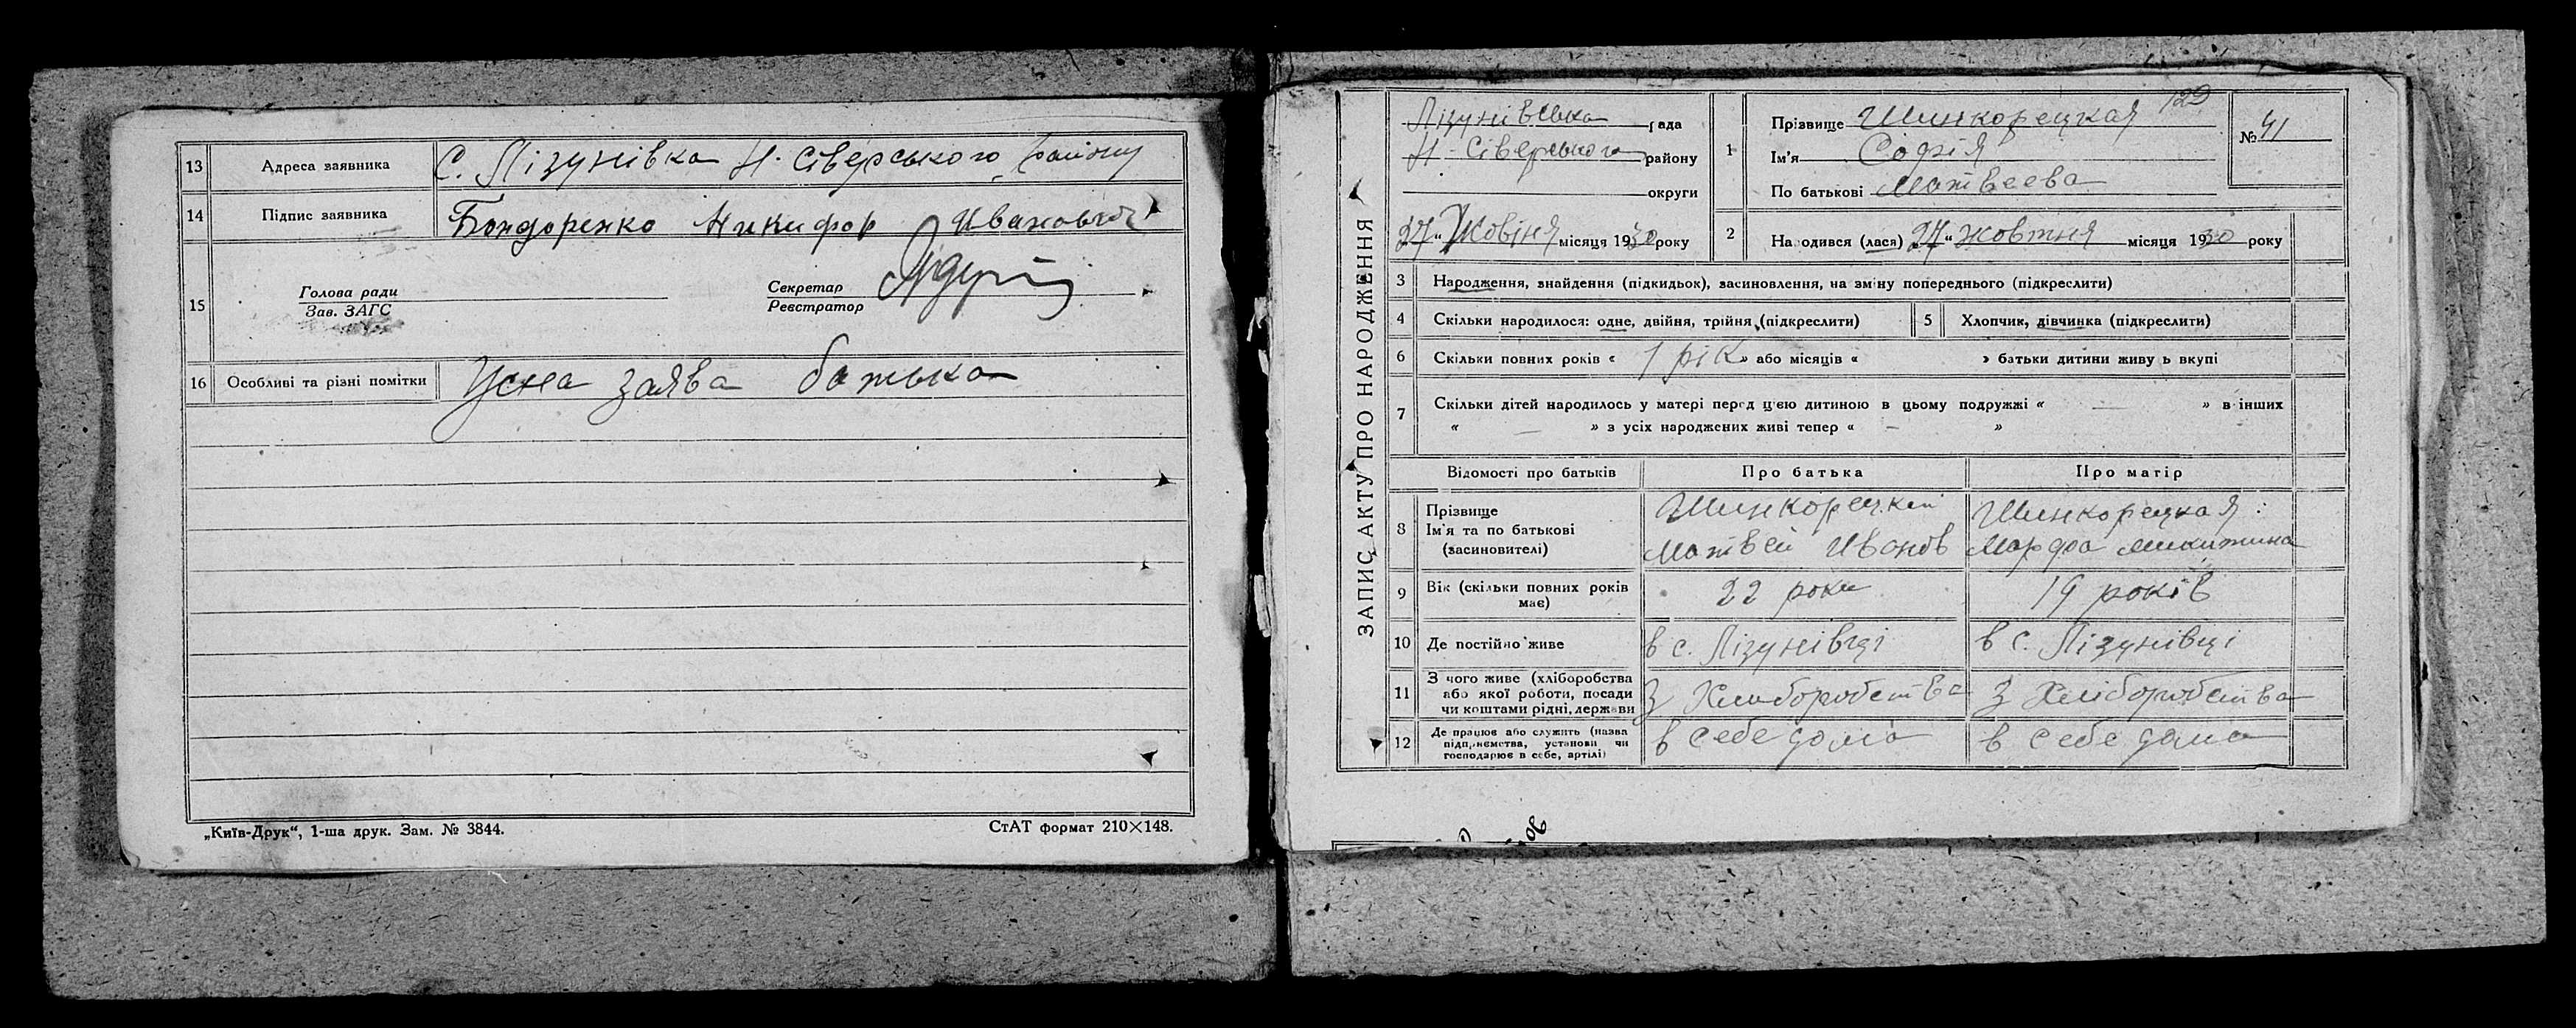 13 Адреса заявника С. Лізунівка Н. Сіверського району
14 Підпис заявника Бондоренко Никифор Ивановыч
15 Голова ради
Зав. ЗАГС
Секретар
Реєстратор
16 Особливі та різні помітки Усна заява батька
„Київ-Друк“, 1-ша друк. Зам. № 3844.
СтАТ формат 210×148.
ЗАПИС АКТУ ПРО НАРОДЖЕННЯ
129
Лізунівська рада
Н-Сіверського району
округи
27 „ Жовтня місяця 1930 року
1 Прізвище Шинкорецкая
Ім'я Софія
По батькові Матвеева
№ 41
2 Народився (лася) 27 „ жовтня місяця 1930 року
3 Народження, знайдення (підкидьок), засиновлення, на зміну попереднього (підкреслити)
4 Скільки народилося: одне, двійня, трійня (підкреслити)
5 Хлопчик, дівчинка (підкреслити)
6 Скільки повних років « 1 рік » або місяців « » батьки дитини живуть вкупі
7 Скільки дітей народилось у матері перед цією дитиною в цьому подружжі « — » в інших
« — » з усіх народжених живі тепер « — »
Відомості про батьків Про батька Про матір
8 Прізвище
Ім'я та по батькові
(засиновителі)
Шинкорецкий
Матвей Иванов
Шинкорецкая
Марфа Микитина
9 Вік (скільки повних років
має)
22 роки 19 років
10 Де постійно живе в с. Лізунівці в с. Лізунівці
11 З чого живе (хліборобства
або якої роботи, посади
чи коштами рідні, держави
З Хлиборобства З Хліборобства
12 Де працює або служить (назва
підприємства, установи чи
господарює в себе, артілі)
в себе дома в себе дома